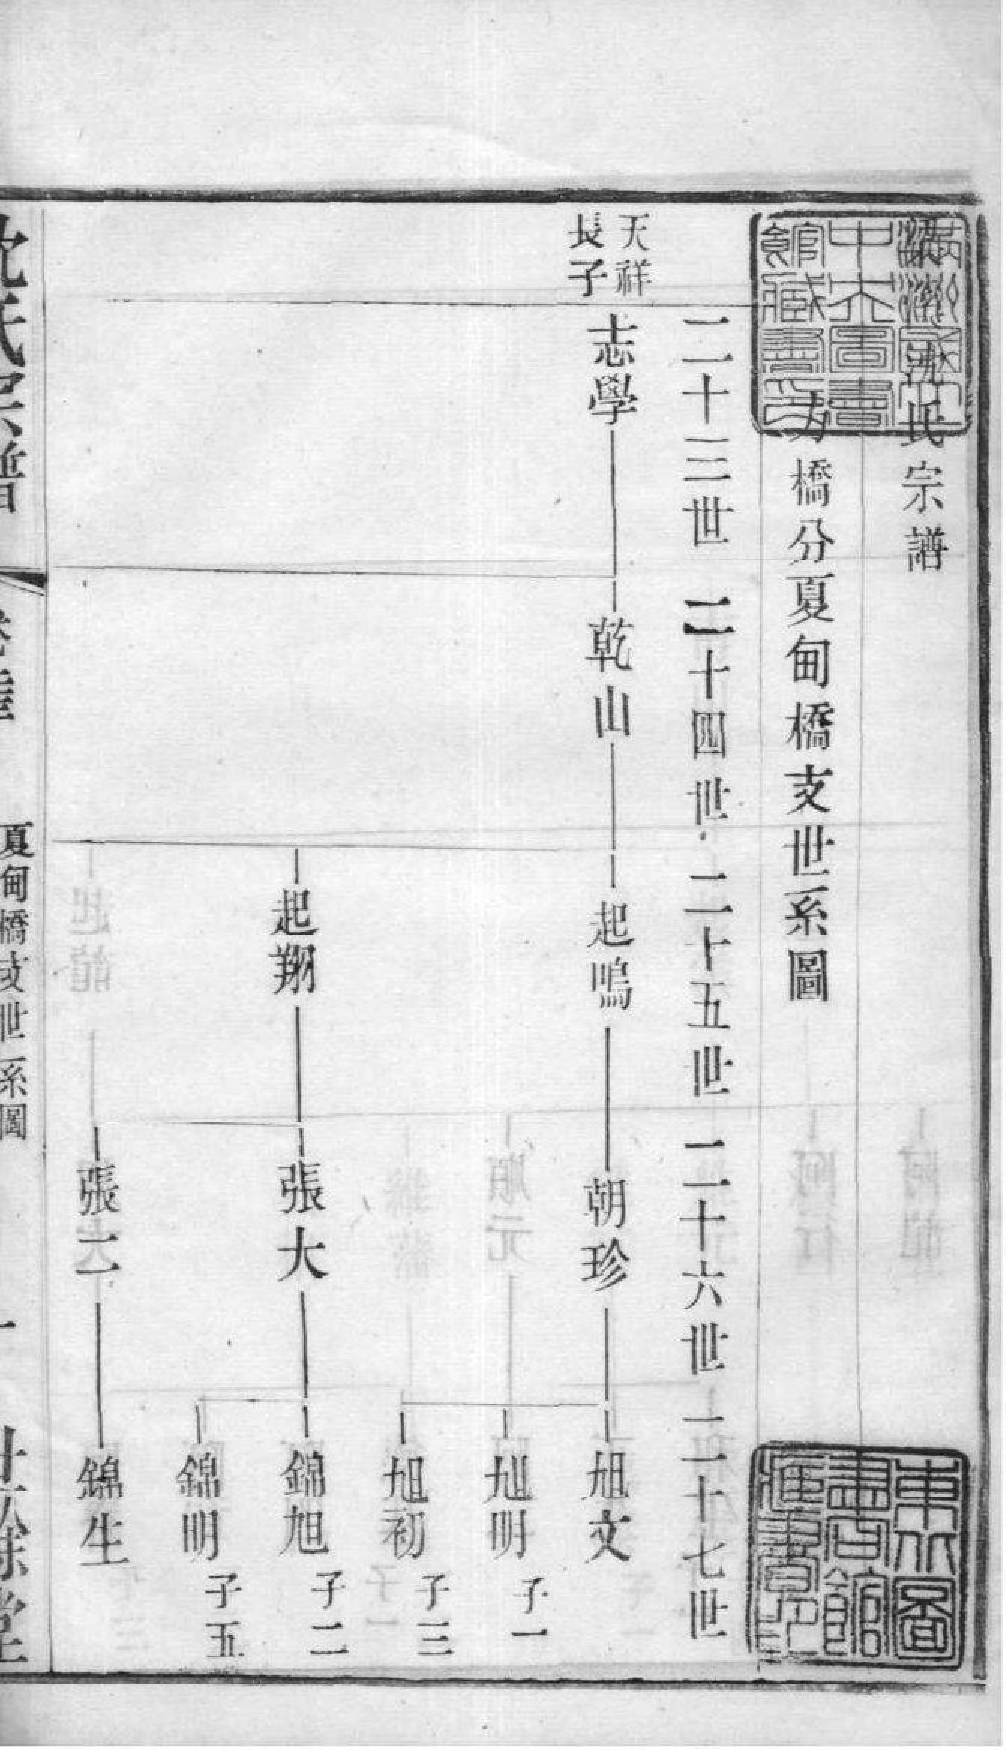 沈氏宗譜
橋分夏甸橋支世系圖
二十三世 二十四世 二十五世 二十六世 二十七世
天祥
長子
志學 乾山 起鳴 朝珍 旭文
旭明 子一
旭初 子三
起翔 張大 錦旭 子二
錦明 子五
張二 錦生
沈氏宗譜 夏甸橋支世系圖 一